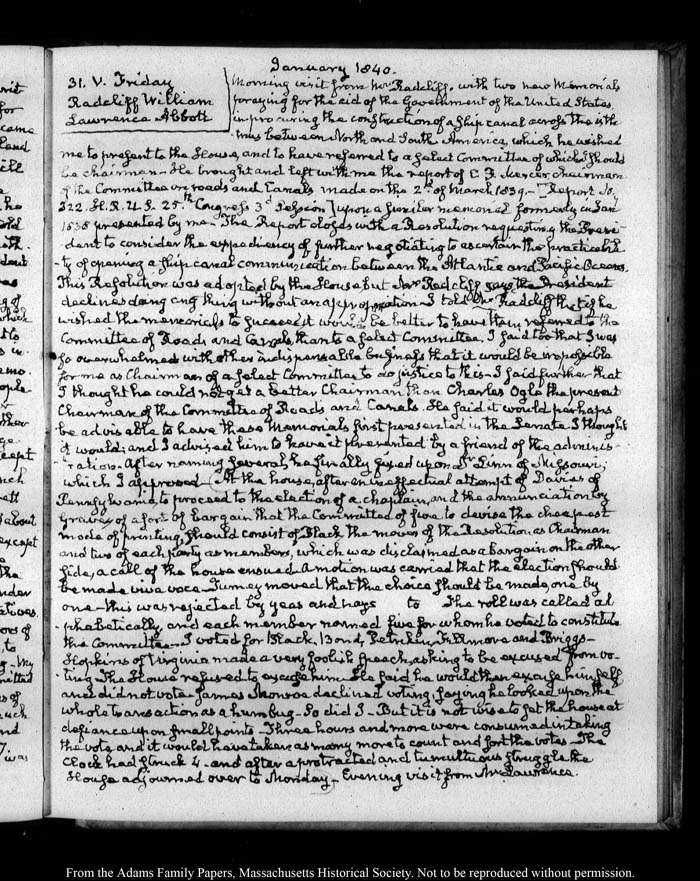 January 1840.
31. V. Friday
Radcliff William
Lawrence Abbott
Morning visit from Mr Radcliff, with two new Memorials
praying for the aid of the Government of the United States,
in procuring the construction of a ship canal across the isth-
mus between North and South America, which he wished
me to present to the House, and to have referred to a select Committee of which I should
be chairman. He brought and left with me the report of C. F. Mercer Chairman
of the Committee on roads and Canals made on the 2d of March 1839. [Report No.
322. H. R. U. S. 25th Congress 3d Session] upon a similar memorial formerly in Jan
1838 presented by me. The Report closes with a Resolution requesting the Presi-
dent to consider the expediency of further negotiating to ascertain the practicabili-
ty of opening a ship canal communication between the Atlantic and Pacific Oceans.
This Resolution was adopted by the House but Mr Radcliff says the President
declines doing any thing without an appropriation. I told Mr Radcliff that if he
wished the memorials to succeed it would be better to have them referred to the
Committee of Roads and Canals than to a select Committee. I said too that I was
so overwhelmed with other indispensable business that it would be impossible
for me as Chairman of a select Committee to do justice to this. I said further that
I thought he could not get a better Chairman than Charles Ogle the present
Chairman of the Committee of Roads and Canals. He said it would perhaps
be advisable to have these Memorials first presented in the Senate. I thought
it would; and I advised him to have it presented by a friend of the adminis-
tration. After naming several, he finally fixed upon Dr Linn of Missouri;
which I approved. At the house, after an ineffectual attempt of Davies of
Pennsylvania, to proceed to the election of a chaplain, and the annunciation by
Graves of a sort of bargain that the Committee of five, to devise the cheapest
mode of printing, should consist of Black the mover of the Resolution as Chairman
and two of each party as members, which was disclaimed as a bargain on the other
side, a call of the house ensued. A motion was carried that the election should
be made viva voce. Turney moved that the choice should be made, one by
one. this was rejected by yeas and nays to The roll was called al-
phabetically, and each member named five for whom he voted to constitute
the Committee. I voted for Black, Bond, Petrikin, Fillmore and Briggs.
Hopkins of Virginia made a very foolish speech, asking to be excused from vo-
ting. The House refused to excuse him. He said he would then excuse himself
and did not vote. James Monroe declined voting, saying he looked upon the
whole transaction as a humbug. So did I. But it is not wise to set the house at
defiance upon small points. Three hours and more were consumed in taking
the vote, and it would have taken as many more to count and sort the votes. The
Clock had struck 4. and after a protracted and tumultuous struggle the
House adjourned over to Monday. Evening visit from Mr Lawrence.
From the Adams Family Papers, Massachusetts Historical Society. Not to be reproduced without permission.